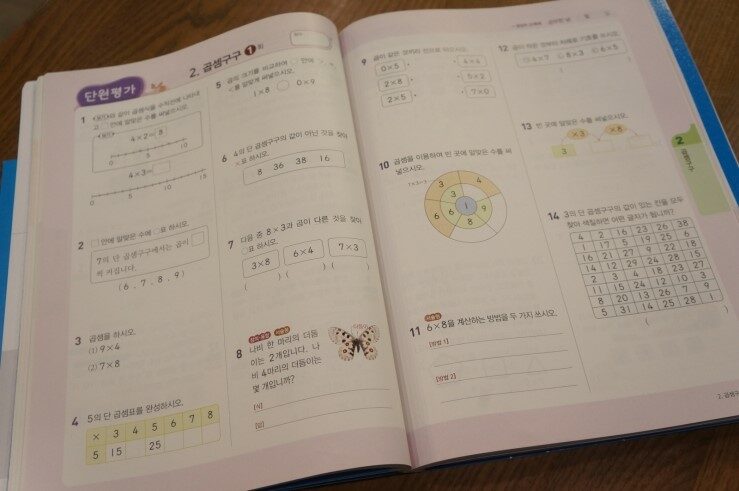 단원평가
2. 곱셈구구 1회
1 <보기>와 같이 곱셈식을 수직선에 나타내
고 안에 알맞은 수를 써넣으시오.
<보기>
4×2=8
0 5 10
4×3=
0 5 10 15
2 안에 알맞은 수에 ○표 하시오.
7의 단 곱셈구구에서는 곱이
씩 커집니다.
(6, 7, 8, 9)
3 곱셈을 하시오.
(1) 9×4
(2) 7×8
4 5의 단 곱셈표를 완성하시오.
× 3 4 5 6 7 8
5 15 25
5 곱의 크기를 비교하여 안에 >,
<를 알맞게 써넣으시오.
1×8 0×9
6 4의 단 곱셈구구의 값이 아닌 것을 찾아
×표 하시오.
8 36 38 16
7 다음 중 8×3과 곱이 다른 것을 찾아
○표 하시오.
3×8 6×4 7×3
( ) ( ) ( )
8 나비 한 마리의 더듬
이는 2개입니다. 나
비 4마리의 더듬이는
몇 개입니까?
더듬이
[식]
[답]
9 곱이 같은 것끼리 선으로 이으시오.
0×5 4×4
2×8 5×2
2×5 7×0
10 곱셈을 이용하여 빈 곳에 알맞은 수를 써
넣으시오.
3 4
3
6 6 1 9
8
11 6×8을 계산하는 방법을 두 가지 쓰시오.
[방법 1]
[방법 2]
12 곱이 작은 것부터 차례로 기호를 쓰시오.
㉠ 4×7 ㉡ 8×3 ㉢ 6×5
13 빈 곳에 알맞은 수를 써넣으시오.
×3 ×8
3
14 3의 단 곱셈구구의 값이 있는 칸을 모두
찾아 색칠하면 어떤 글자가 됩니까?
4 2 16 23 26 38
1 17 5 19 25 6
16 21 27 9 22 18
14 12 29 24 28 15
2 3 4 18 23 27
11 15 24 12 10 3
8 20 13 26 7 9
5 31 14 25 28 1
( )
2
곱셈구구
2. 곱셈구